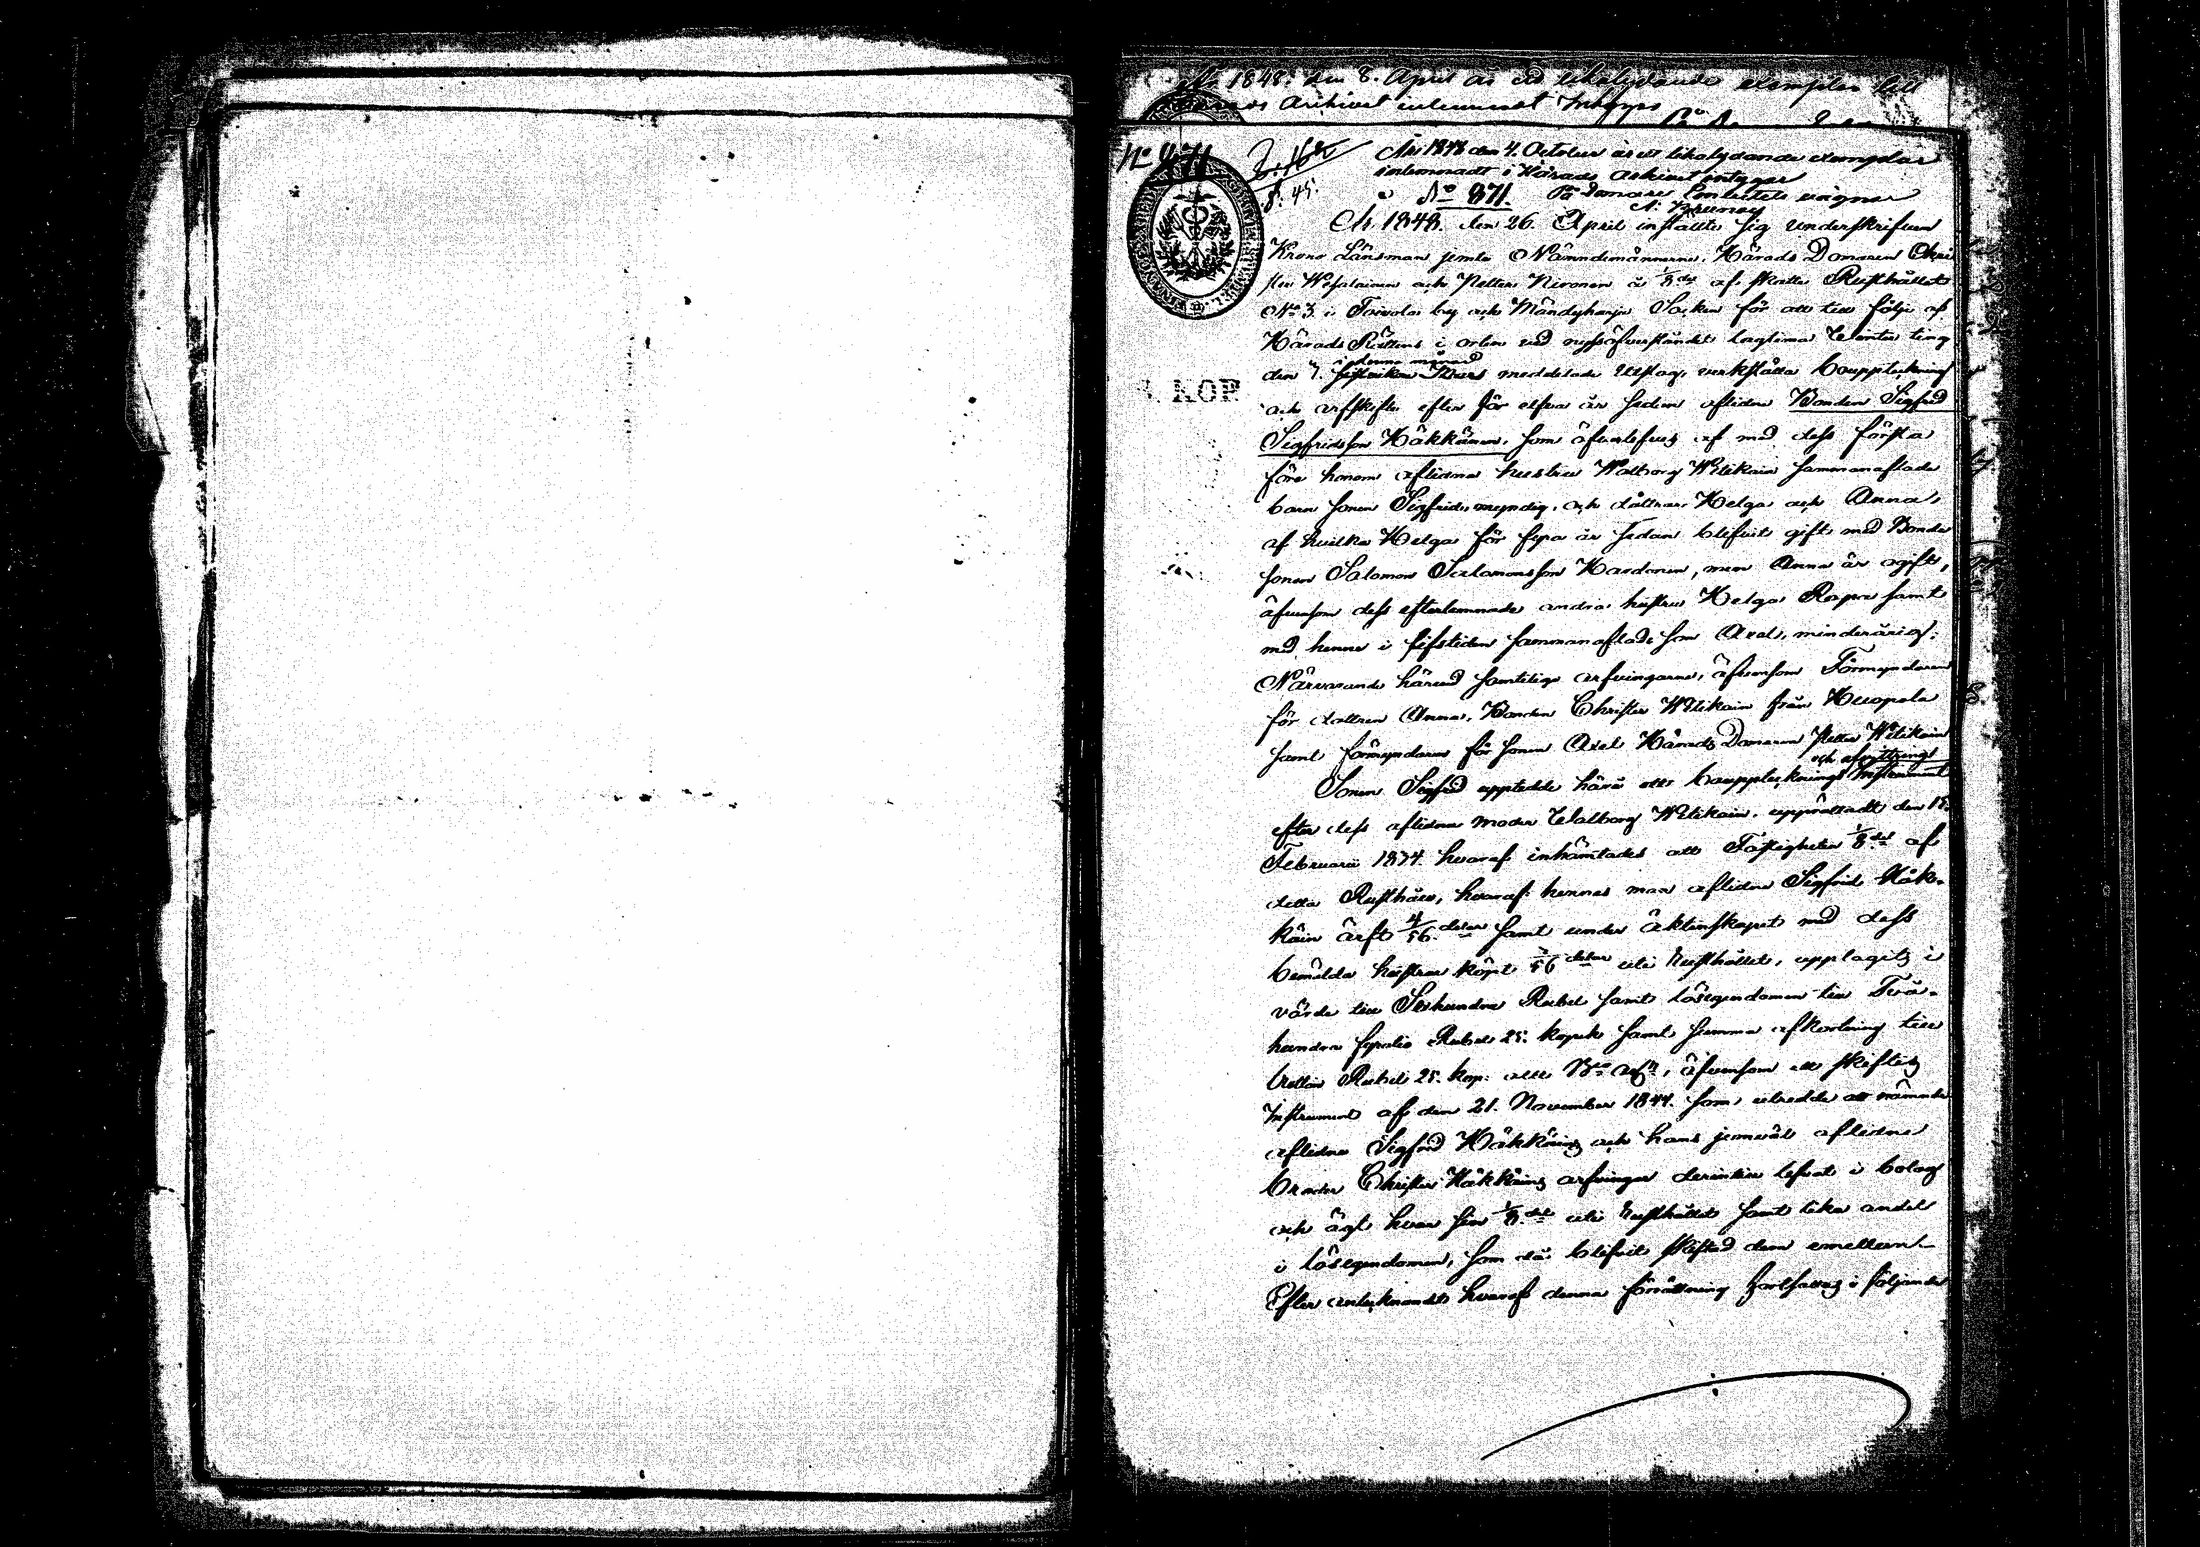 1848. den 8. April är ett likalydande exemplar till
Härads Arkivet inlemnadt Intygas
No 871
År 1848 den 4. October är ett likalydande exemplar
inlemnadt i Härads Arkivet intygar
No 871. På Domare Embetets vägnar
År 1848. den 26. April instälte sig underskrifven
Krono Länsman jemte Nämndemännerne, Härads Domaren Chri
ster Wesalainen och Petter Nironen å 1/8del af skatte Rusthållet
No 3 i Toivola by och Mändyharju Socken för att till följe af
Härads Rättens i orten vid nyssöfverståndet lagtima Winter ting
i denna månad
den 7. meddelade utslag, verkställa bouppteckning
och arfskifte efter för elfva år sedan aflidne Bonden Sigfrid
Sigfridsson Häkkänen, som öfverlefves af med dess första
före honom aflidna hustru Walborg Wilikain sammanaflade
barn sonen Sigfrid, myndig, och döttrar Helga och Anna,
af hvilka Helga för fyra år sedan blifvit gift med Bonde
sonen Salomon Salomonsson Haronen, men Anna är ogift,
äfvensom dess efterlemnade andra hustru Helga Repo samt
med henne i lifstiden sammanaflade son Axel, minderårig.
Närvarande härvid samtelige arfvingarne, äfvensom Förmyndaren
för dottren Anna, Bonden Christer Wilikain från Kuopala
samt förmyndaren för sonen Axel Härads Domaren Petter Wilikain
och afvittrings
Sonen Sigfrid upptedde härå ett boupptecknings Instrument
efter dess aflidna moder Walborg Wilikain, upprättadt den 18.
Februari 1834. hvaraf inhämtades att Fastigheten 1/8del af
detta Rusthåll, hvaraf hennes man aflidne Sigfrid Häk-
käin ärft 4/56delar samt under äktenskapet med dess
bemälda hustru köpt 3/56delar uti Rusthållet, upptagits i
värde till Sexhundra Rubel samt lösegendomen till Två-
hundra fyratio Rubel 25. kopek samt summa afkortning till
Rubel 25. kop. allt Bco Assr, äfvensom ett skiftes
Instrument af den 21. November 1844. som utredde att nämnde
aflidne Sigfrid Häkkäin och hans jemväl aflidne
broder Christer Häkkäins arfvingar derintill lefvat i bolag
och ägt hvar sin 1/8del uti Rusthållet samt lika andel
i lösegendomen, som då blifvit skiftad dem emellan.
Efter antecknandet hvaraf denna förrättning fortsattes i följande